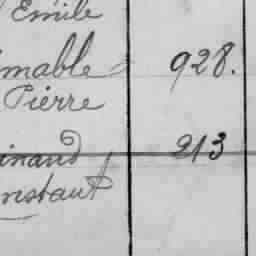 Emile
imable 928.
Pierre
inand 213
nstant